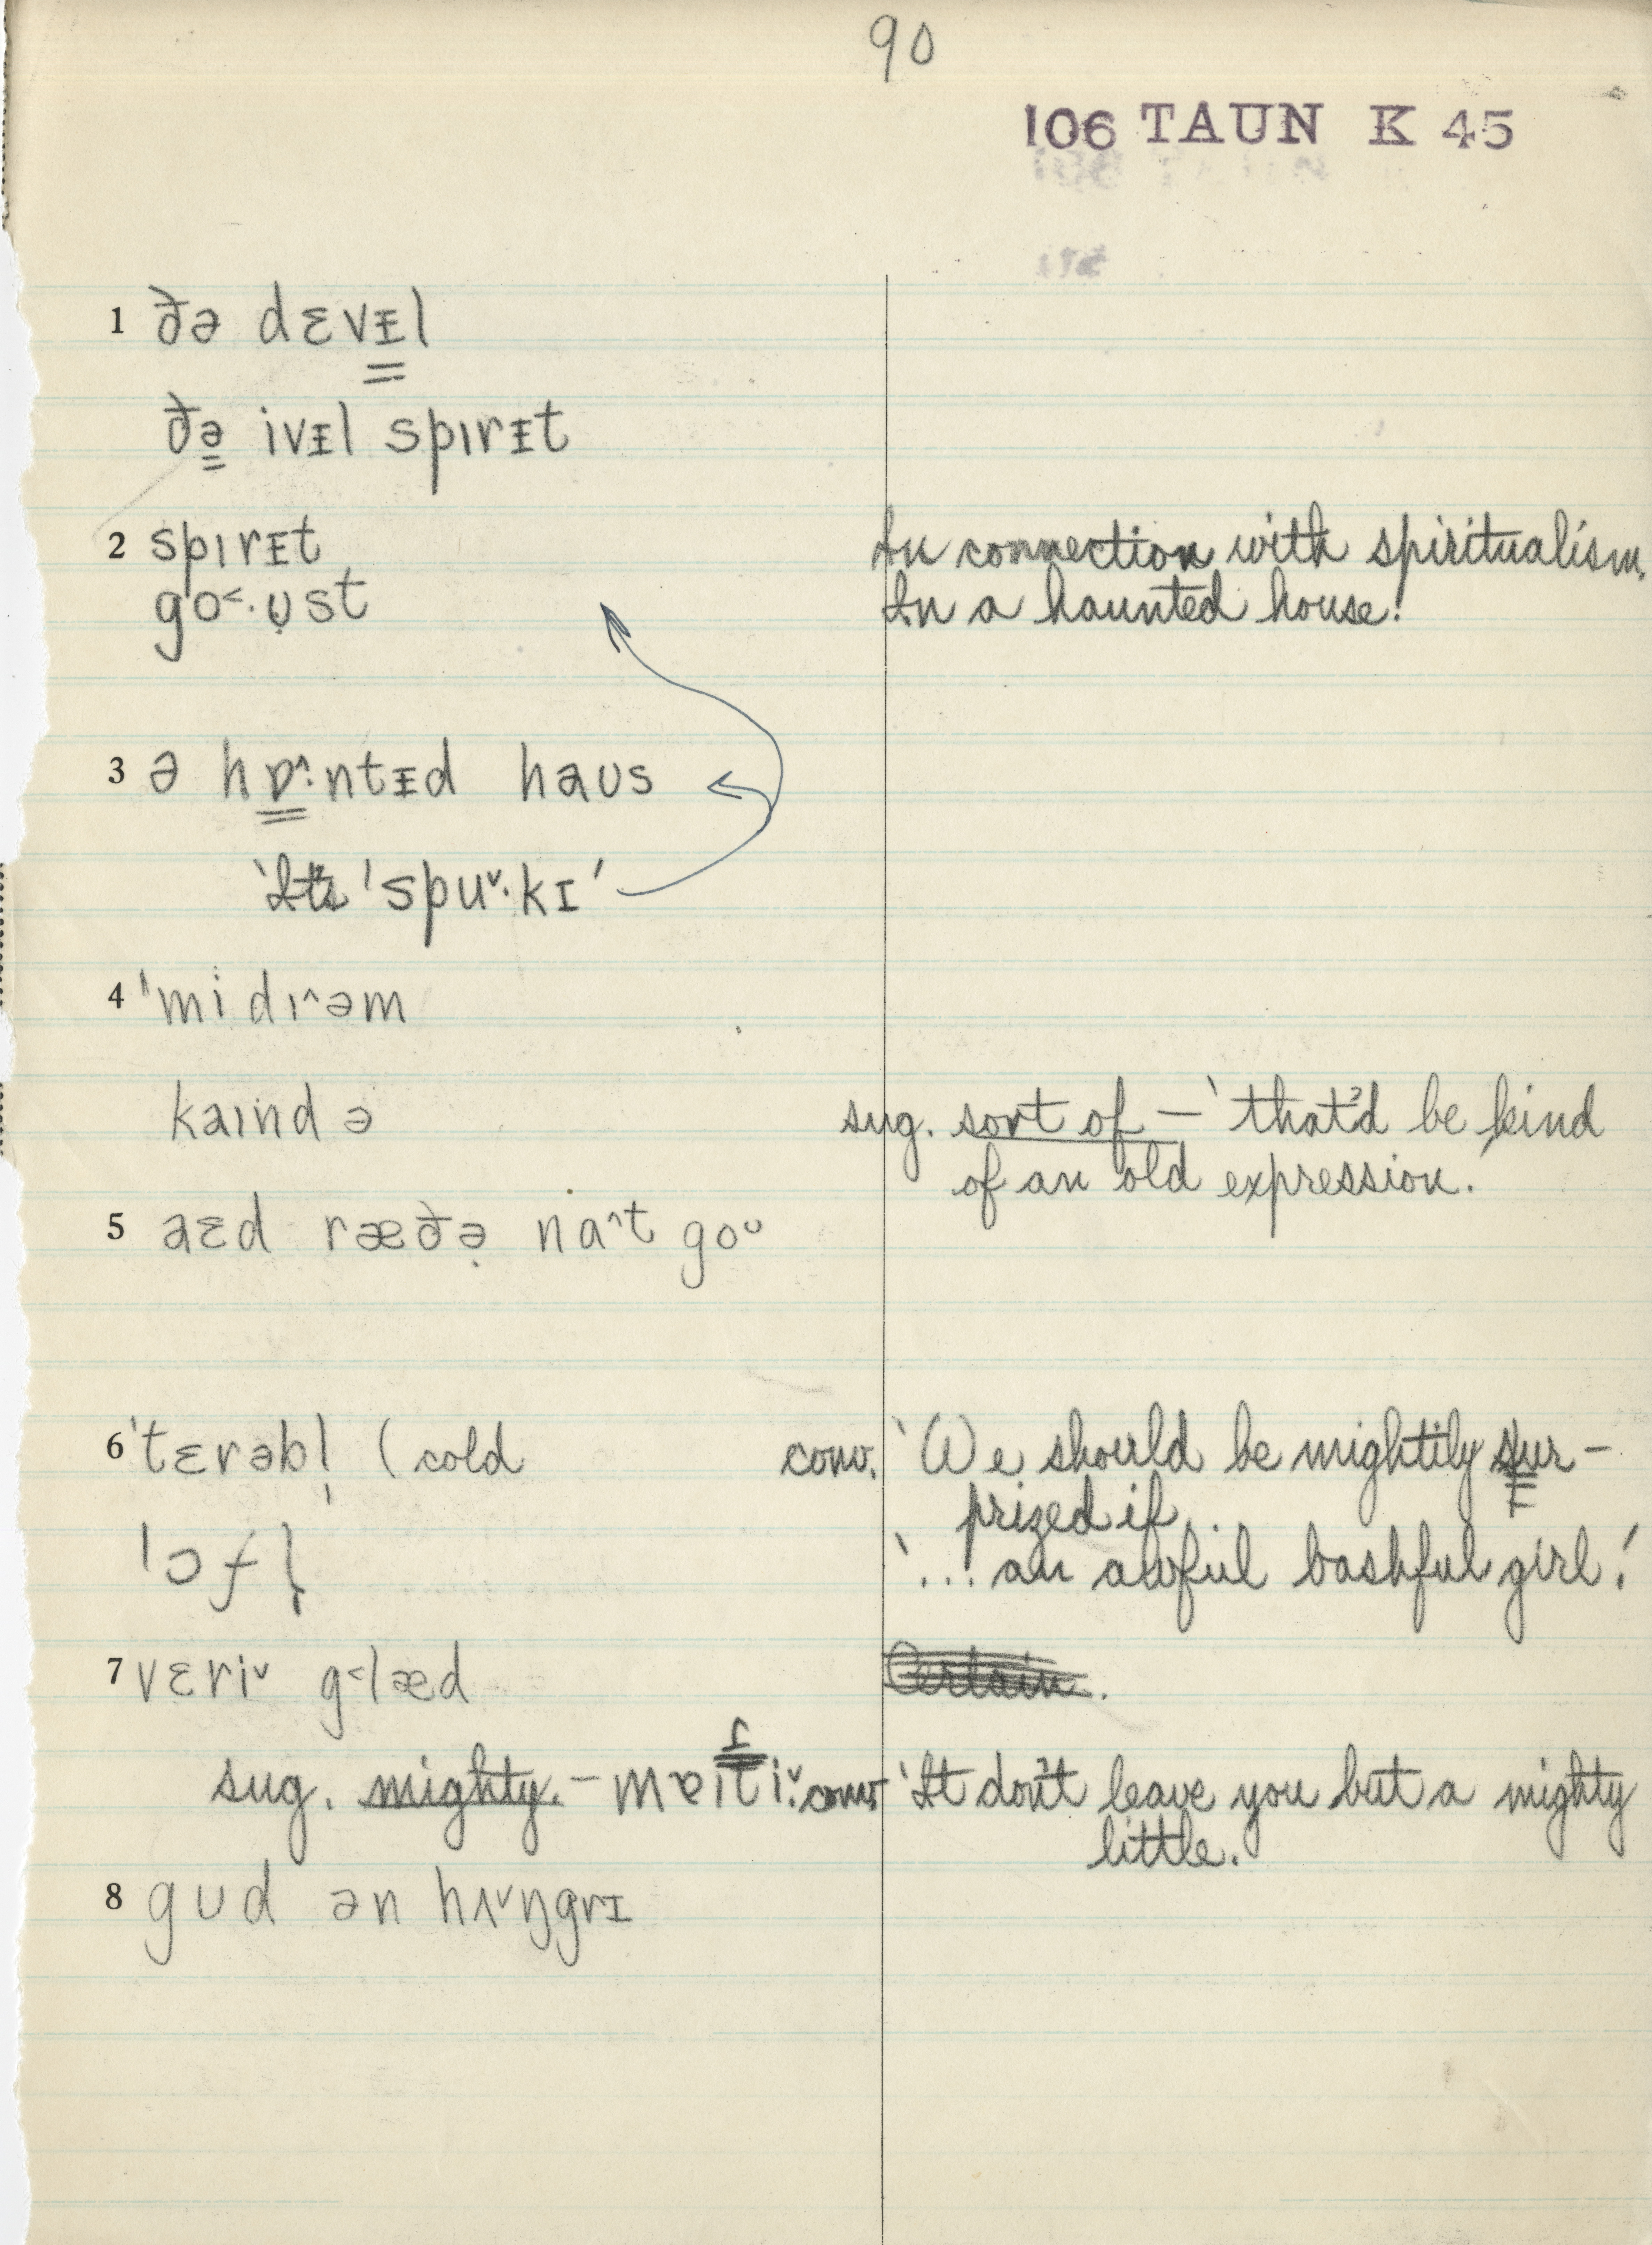 90
106 TAUN K 45
1 ðə dɛvᵻl
ðə ivᵻl spɪrᵻt
2 spɪrᵻt In connection with spiritualism.
go˂·ʊ̣st In a haunted house.'
3 ə hɒ˄·ntᵻd haʊs
'It's 'spu˅·kɪ'
4 'midɪ˄əm
kaɪnd ə sug. sort of – 'that'd be kind
of an old expression.'
5 aɛd ræðə̣ na˄t goᶸ
6 'tɛrəbl̩ (cold conv. 'We should be mightily sur-
prized if
'ɔfl̩ '... an awful bashful girl.'
7 vɛri˅ g˂læd
sug. mighty. – mɐɪt̬i˅· conv. 'It don't leave you but a mighty
little.
8 gʊd ən hʌ˅ŋgrɪ